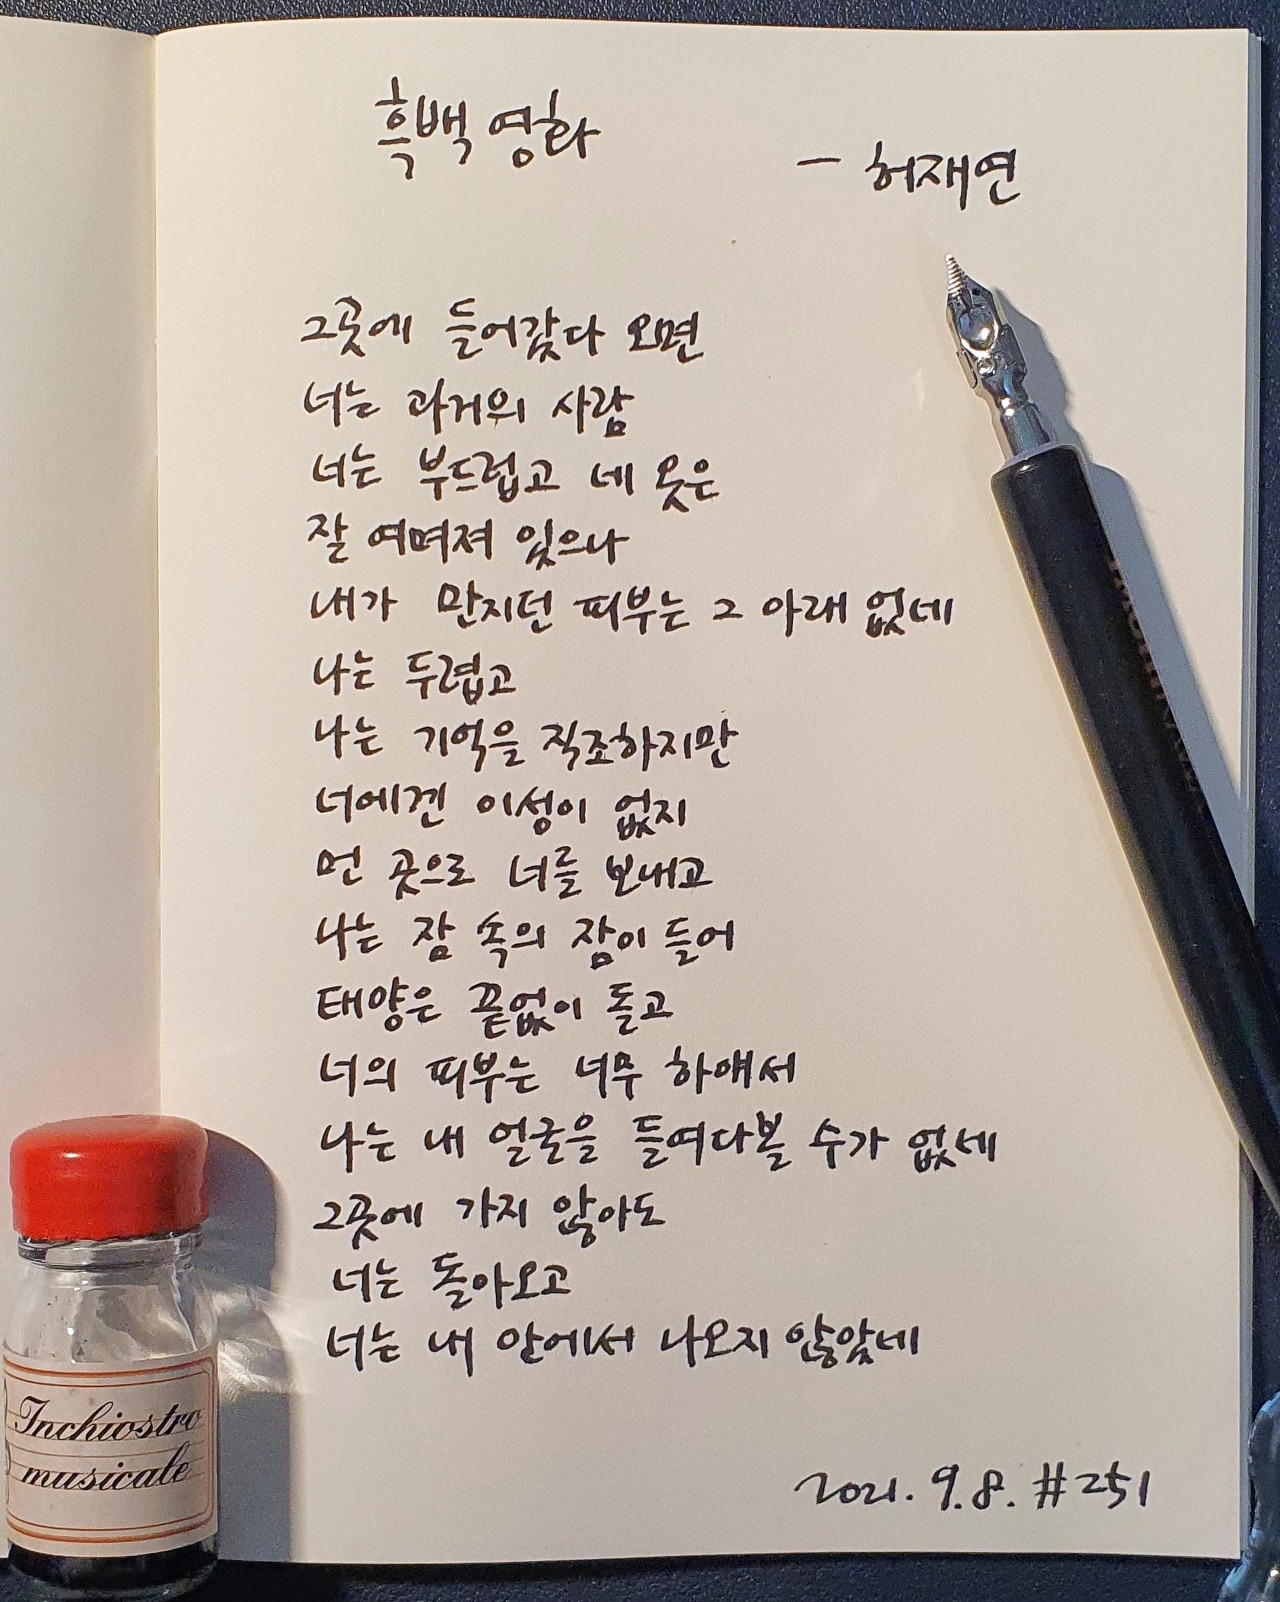 흑백 영화
— 허재연
그곳에 들어갔다 오면
너는 과거의 사람
너는 부드럽고 네 옷은
잘 여며져 있으나
내가 만지던 피부는 그 아래 없네
나는 두렵고
나는 기억을 직조하지만
너에겐 이성이 없지
먼 곳으로 너를 보내고
나는 잠 속의 잠이 들어
태양은 끝없이 돌고
너의 피부는 너무 하얘서
나는 내 얼굴을 들여다볼 수가 없네
그곳에 가지 않아도
너는 돌아오고
너는 내 안에서 나오지 않았네
2021. 9. 8. #251
Inchiostro
musicale